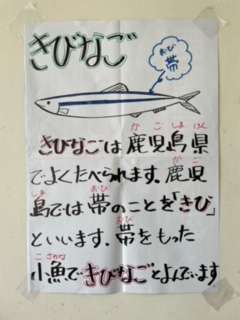 きびなご
おび
帯
かごしまけん
きびなごは鹿児島県
でよくたべられます。鹿児
島では帯のことを「きび」
といいます。帯をもった
小魚できびなごとよんでいます